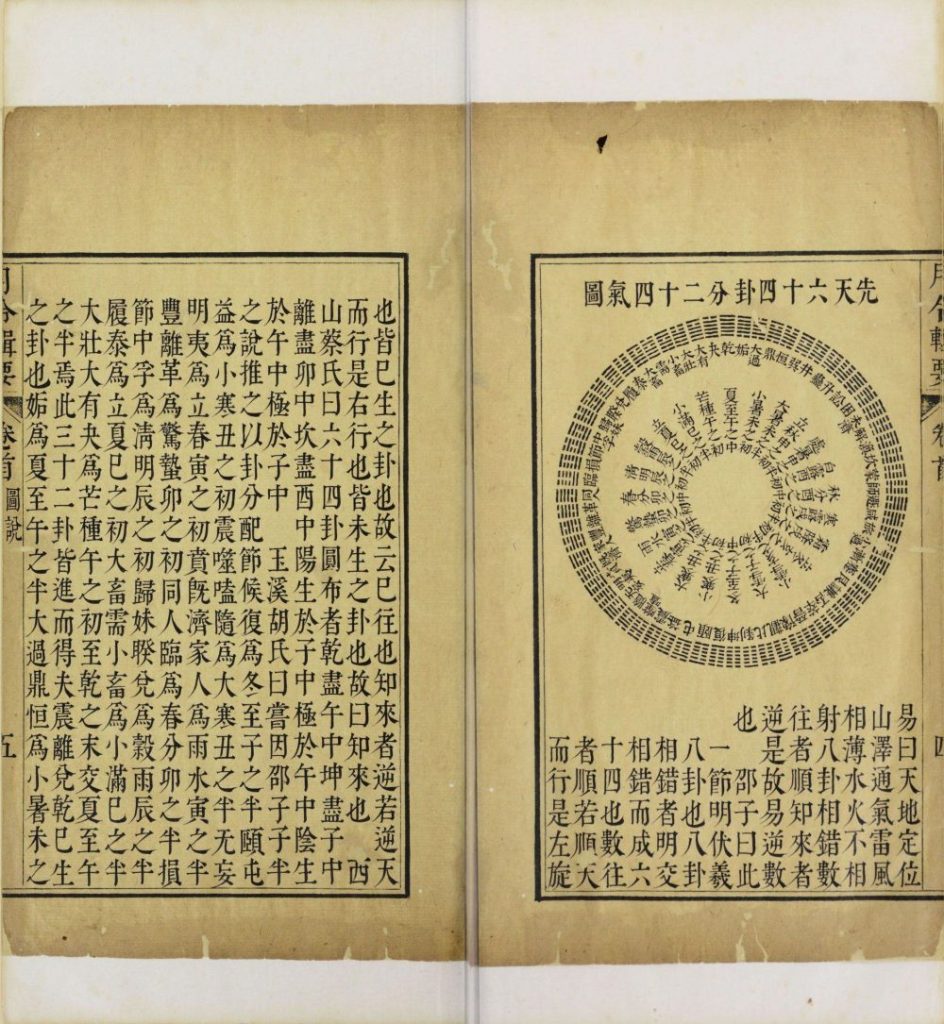 先天六十四卦分二十四氣圖
乾夬大有大壯小畜需大畜泰履兌
姤大過鼎恒巽井蠱升訟困未濟解渙坎蒙師遯咸旅小過漸蹇艮謙否萃晉豫觀比剝坤
夏至午之中
小暑未之初
易曰天地定位
山澤通氣雷風
相薄水火不相
射八卦相錯數
往者順知來者
逆是故易逆數
也　邵子曰此
一節明伏羲
八卦也八卦
相錯者明交
相錯而成六
十四也數往
者順若順天
而行是左旋
也皆已生之卦也故云已往也知來者逆若逆天
而行是右行也皆未生之卦也故曰知來也　西
山蔡氏曰六十四卦圓布者乾盡午中坤盡子中
離盡卯中坎盡酉中陽生於子中極於午中陰生
於午中極於子中　玉溪胡氏曰嘗因邵子子半
之說推之以卦分配節候復爲冬至子之半頤屯
益爲小寒丑之初震噬嗑隨爲大寒丑之半无妄
明夷爲立春寅之初賁旣濟家人爲雨水寅之半
豐離革爲驚蟄卯之初同人臨爲春分卯之半損
節中孚爲清明辰之初歸妹睽兌爲穀雨辰之半
履泰爲立夏巳之初大畜需小畜爲小滿巳之半
大壯大有夬爲芒種午之初至乾之末交夏至午
之半焉此三十二卦皆進而得夫震離兌乾已生
之卦也姤爲夏至午之半大過鼎恒爲小暑未之
卷首
圖說
五